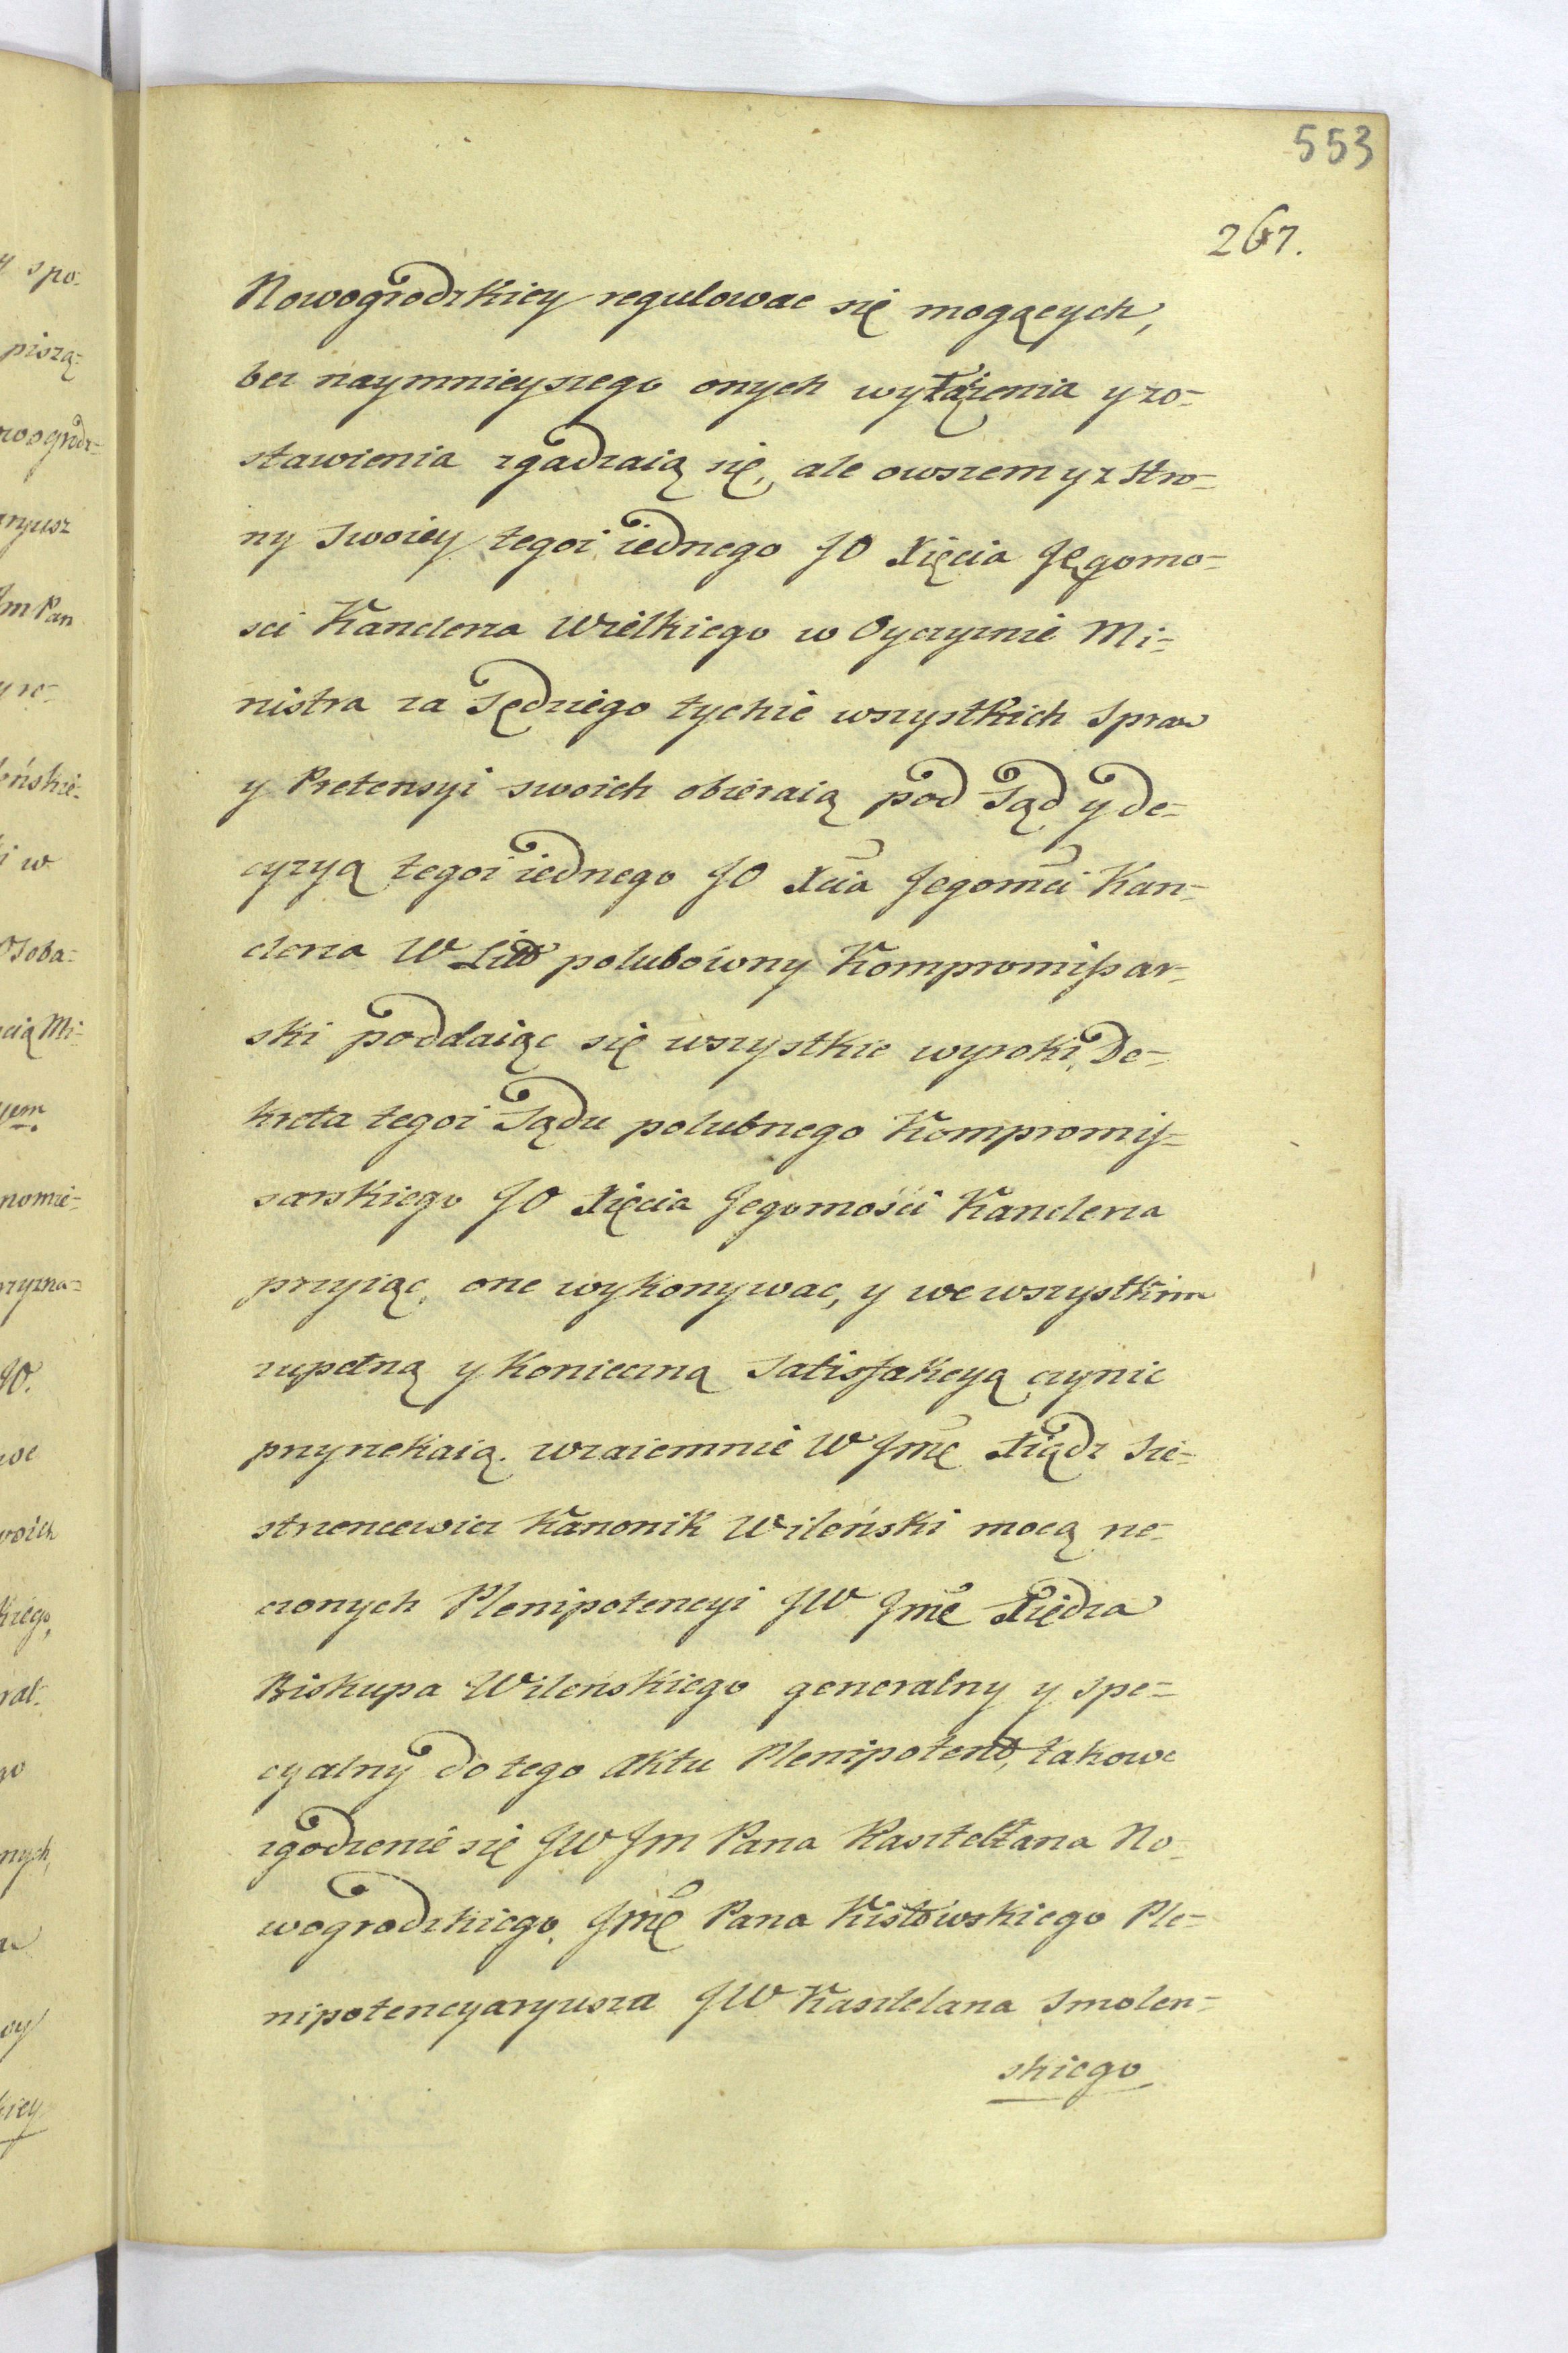 553
267.
Nowogrodzkiey regulowac się mogących,
bez naymnieyszego onych wyłączenia y zo-
stawienia zgadzaią się, ale owszem y z stro-
ny swoiey tegoż iednego JO Xięcia Jegomo-
sci Kanclerza Wielkiego w Oyczyznie Mi-
nistra za Sędziego tychże wszystkich spraw
y Pretensyi swoich obieraią pod Sąd y de-
cyzyą tegoż iednego JO Xcia Jegomci Kan-
clerza W Litt polubowny Kompromissar-
ski poddaiąc się wszystkie wyroki, De-
kreta tegoż Sądu polubnego Kompromis-
sarskiego JO Xięcia Jegomości Kanclerza
przyiąc, one wykonywac, y we wszystkim
zupełną y Konieczną Satisfakcyą czynic
przyrzekaią. wzaiemnie W Jmć Xiądz Sie-
strzencewicz Kanonik Wileński mocą rze-
czonych Plenipotencyi JW Jmć Xiędza
Biskupa Wileńskiego generalny y spe-
cyalny do tego Aktu Plenipotent, takowe
zgodzenie się JW Jm Pana Kasztellana No-
wogrodzkiego, Jmć Pana Kisłowskiego Ple-
nipotencyaryusza JW Kasztelana Smolen-
skiego
y spo-
pisza-
aryusz
Jm Pan
y w
Osoba-
cią Mi-
nomie-
JO.